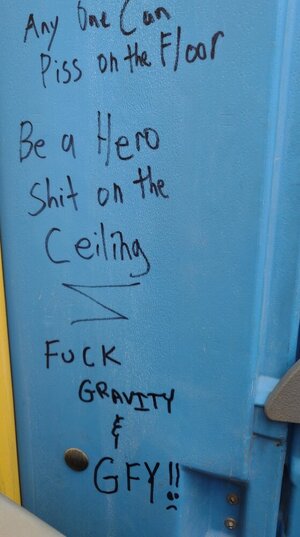 Any One Can
Piss on the Floor
Be a Hero
Shit on the
Ceiling
FUCK
GRAVITY
&
GFY!!